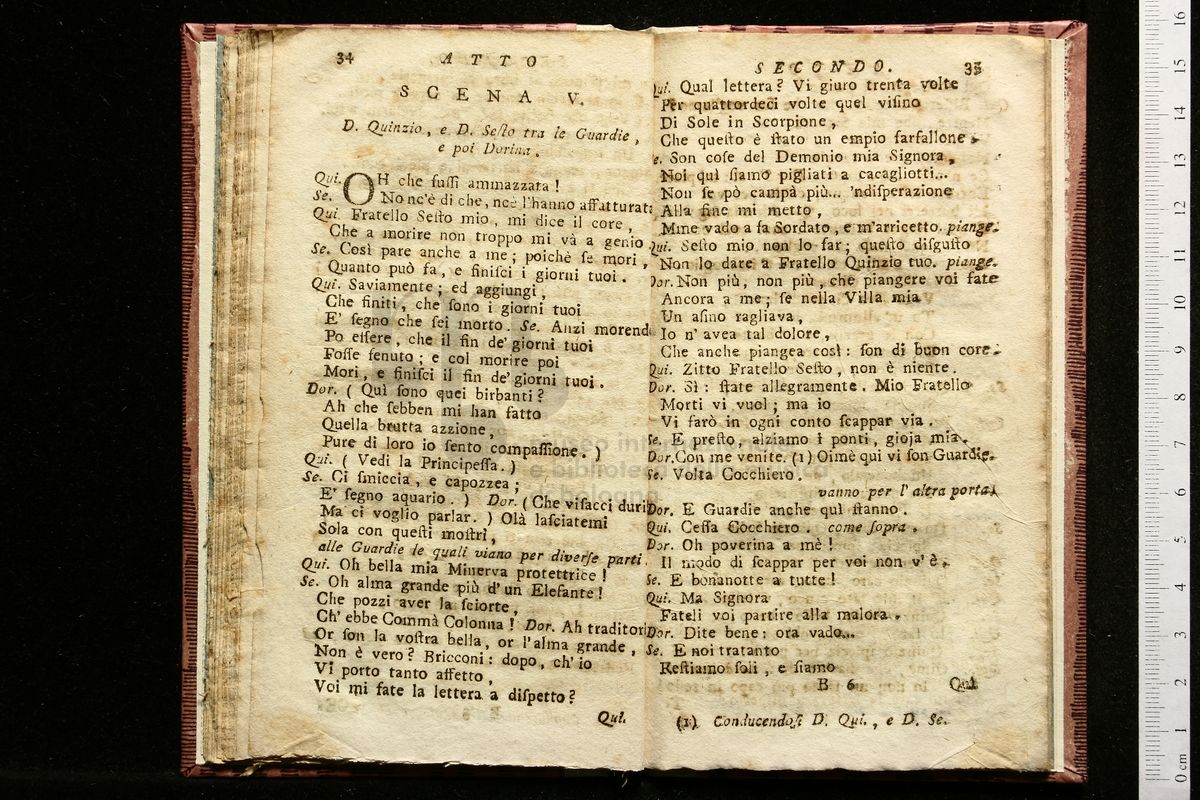 34 ATTO
SCENA V.
D. Quinzio, e D. Seſto tra le Guardie,
e poi Dorina.
Qui. OH che fuſſi ammazzata!
Se. No nc'è di che, ncè l'hanno affatturata
Qui. Fratello Seſto mio, mi dice il core,
Che a morire non troppo mi và a genio
Se. Così pare anche a me; poichè ſe mori,
Quanto può fa, e finiſci i giorni tuoi.
Qui. Saviamente; ed aggiungi,
Che finiti, che ſono i giorni tuoi
E' ſegno che ſei morto. Se. Anzi morend
Po eſſere, che il fin de' giorni tuoi
Foſſe ſenuto; e col morire poi
Mori, e finiſci il fin de' giorni tuoi.
Dor. ( Quì ſono quei birbanti?
Ah che ſebben mi han fatto
Quella brutta azzione,
Pure di loro io ſento compaſſione. )
Qui. ( Vedi la Principeſſa. )
Se. Ci ſmiccia, e capozzea;
E' ſegno aquario. ) Dor. ( Che viſacci duri
Ma ci voglio parlar. ) Olà laſciatemi
Sola con queſti moſtri,
alle Guardie le quali viano per diverſe parti
Qui. Oh bella mia Minerva protettrice!
Se. Oh alma grande più d' un Elefante!
Che pozzi aver la ſciorte,
Ch' ebbe Commà Colonna! Dor. Ah traditori
Or ſon la voſtra bella, or l'alma grande,
Non è vero? Bricconi: dopo, ch' io
Vi porto tanto affetto,
Voi mi fate la lettera a diſpetto?
Qui.
SECONDO. 35
Qui. Qual lettera? Vi giuro trenta volte
Per quattordeci volte quel viſino
Di Sole in Scorpione,
Che queſto è ſtato un empio farfallone.
e. Son coſe del Demonio mia Signora,
Noi quì ſiamo pigliati a cacagliotti...
Non ſe pò campà più... 'ndiſperazione
Alla fine mi metto,
Mme vado a fa Sordato, e m'arricetto. piange.
Qui. Seſto mio non lo far; queſto diſguſto
Non lo dare a Fratello Quinzio tuo. piange.
Dor. Non più, non più, che piangere voi fate
Ancora a me; ſe nella Villa mia
Un aſino ragliava,
Io n' avea tal dolore,
Che anche piangea così: ſon di buon core.
Qui. Zitto Fratello Seſto, non è niente.
Dor. Sì: ſtate allegramente. Mio Fratello
Morti vi vuol; ma io
Vi farò in ogni conto ſcappar via.
Se. E preſto, alziamo i ponti, gioja mia.
Dor. Con me venite. (1) Oimè qui vi ſon Guardie.
Se. Volta Cocchiero.
vanno per l' altra porta.
Dor. E Guardie anche quì ſtanno.
Qui. Ceſſa Cocchiero. come ſopra.
Dor. Oh poverina a mè!
Il modo di ſcappar per voi non v' è.
Se. E bonanotte a tutte!
Qui. Ma Signora
Fateli voi partire alla malora.
Dor. Dite bene: ora vado...
Se. E noi tratanto
Reſtiamo ſoli, e ſiamo
B 6 Qui
(1) Conducendoſi D. Qui., e D. Se.